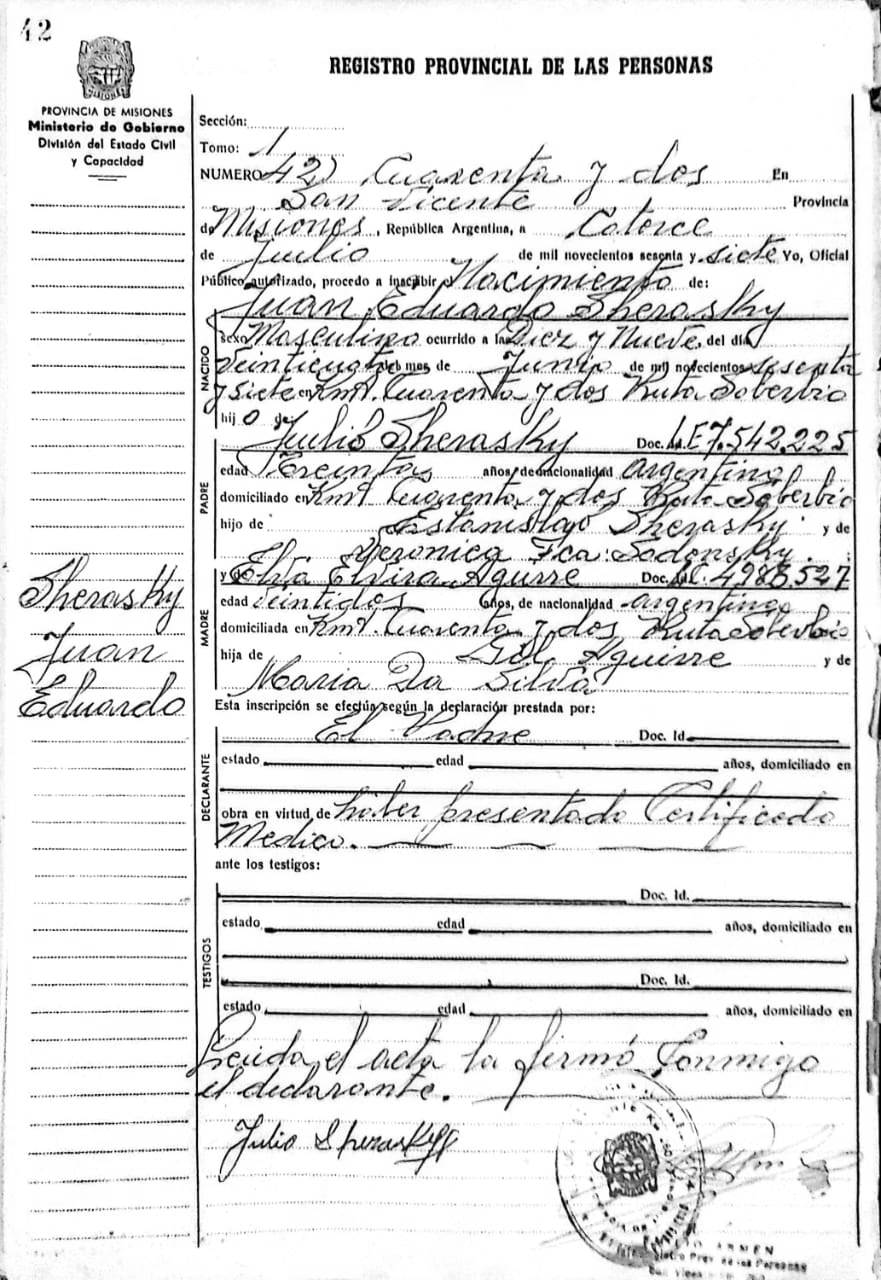 42
PROVINCIA DE MISIONES
Ministerio de Gobierno
División del Estado Civil
y Capacidad
REGISTRO PROVINCIAL DE LAS PERSONAS
Sección:
Tomo: 1
NUMERO 42) Cuarenta y dos En
San Vicente Provincia
de Misiones, República Argentina, a Catorce
de Julio de mil novecientos sesenta y siete Yo, Oficial
Público autorizado, procedo a inscribir el Nacimiento de:
Juan Eduardo Sherasky
NACIDO
sexo Masculino ocurrido a las Diez y Nueve, del día
Veinticuatro del mes de Junio de mil novecientos sesenta
y siete en Km. Cuarenta y dos Ruta Soberbio
hijo de:
PADRE
Julio Sherasky Doc. Id. L.E 7.542.225
edad Treinta años, de nacionalidad Argentina
domiciliado en Km. Cuarenta y dos Ruta Soberbio
hijo de Estanislao Sherasky y de
Veronica Fca: Sadonsky.
MADRE
y de Elva Elvira Aguirre Doc. Id. 4988.527
edad Veintidos años, de nacionalidad Argentina
domiciliada en Km. Cuarenta y dos Ruta Soberbio
hija de Gil Aguirre y de
Maria Da Silva
Sherasky
Juan
Eduardo
Esta inscripción se efectúa según la declaración prestada por:
DECLARANTE
El Padre Doc. Id.
estado edad años, domiciliado en
obra en virtud de haber presentado Certificado
Medico.
ante los testigos:
TESTIGOS
Doc. Id.
estado edad años, domiciliado en
Doc. Id.
estado edad años, domiciliado en
Leida el acta la firmó Conmigo
el declarante.
Julio Sherasky
ARMEN
Registro Prov. de las Personas